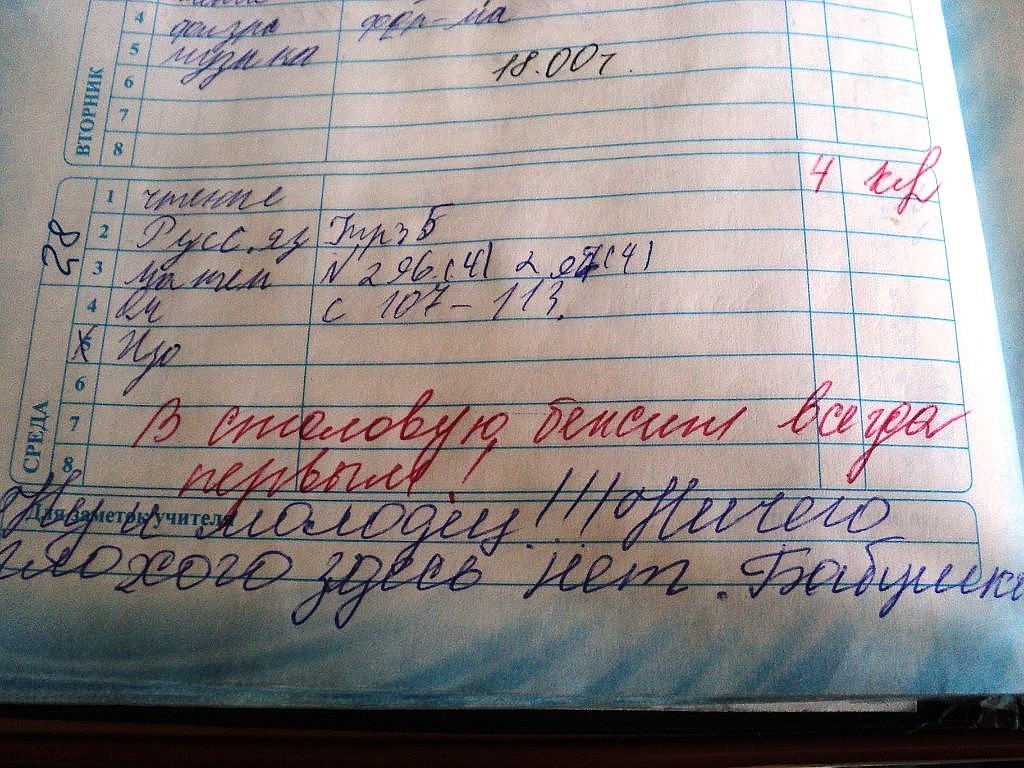 4 физра фор-ма
5 музыка
18.00г.
6
7
8
ВТОРНИК
1 чтение 4
2 Русс.яз Упр 5
3 матем N 296.(4) 297(4)
4 с 107-113.
5 Изо
6
7 В столовую бежит всегда
8 первым!
28
СРЕДА
Для заметок учителя
Ну и молодец!!! Ничего
плохого здесь нет. Бабушка